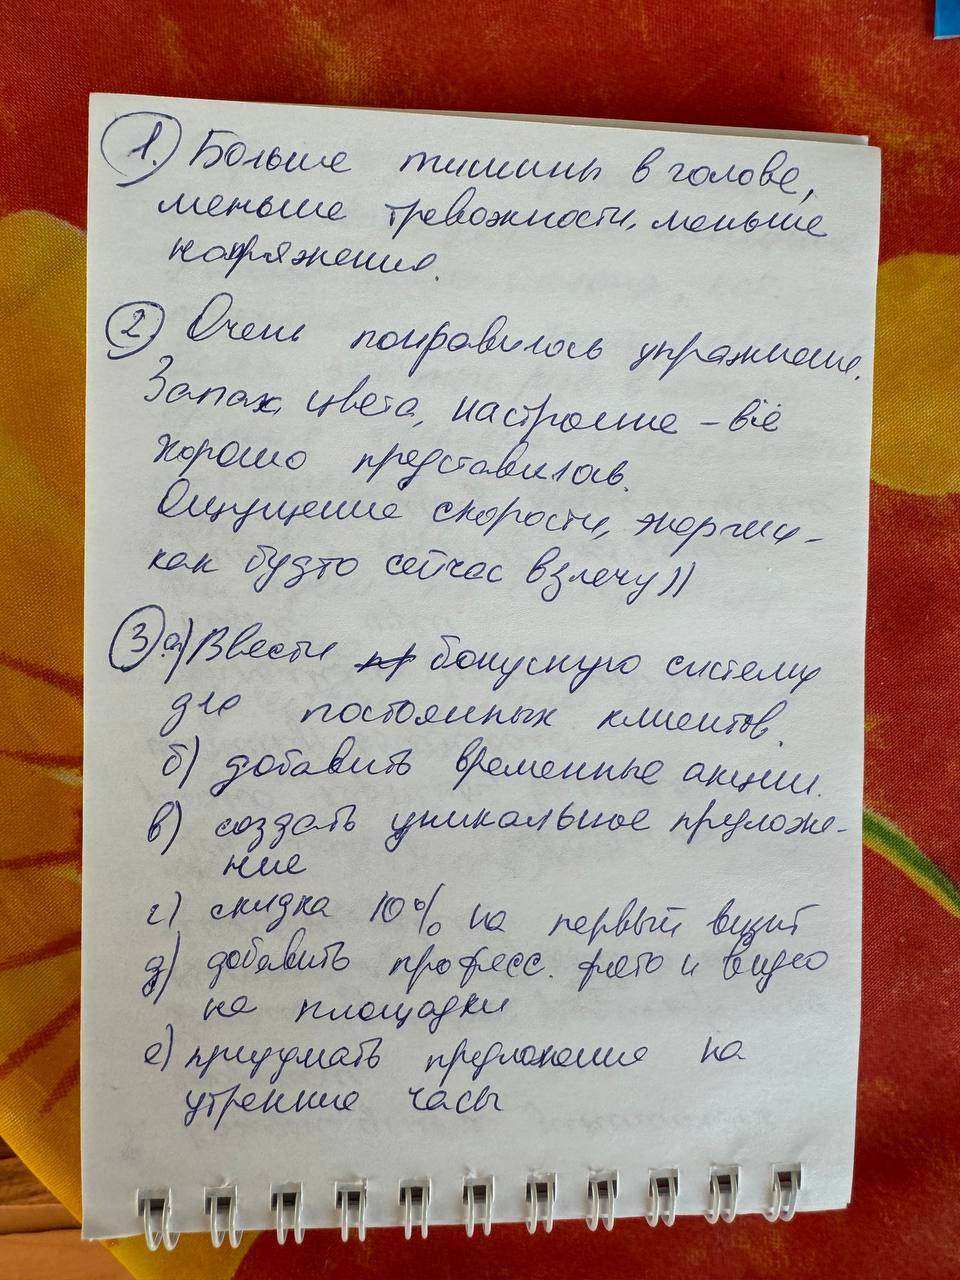 1. Больше тишины в голове,
меньше тревожности, меньше
напряжения.
2 Очень понравилось упражнение.
Запах, цвета, настроение – всё
хорошо представилось.
Ощущение скорости, энергии –
как будто сейчас взлечу))
3 а) Ввести бонусную систему
для постоянных клиентов.
б) добавить временные акции.
в) создать уникальное предложе-
ние
г) скидка 10% на первый визит
д) добавить професс. фото и видео
на площадки
е) придумать предложение на
утренние часы